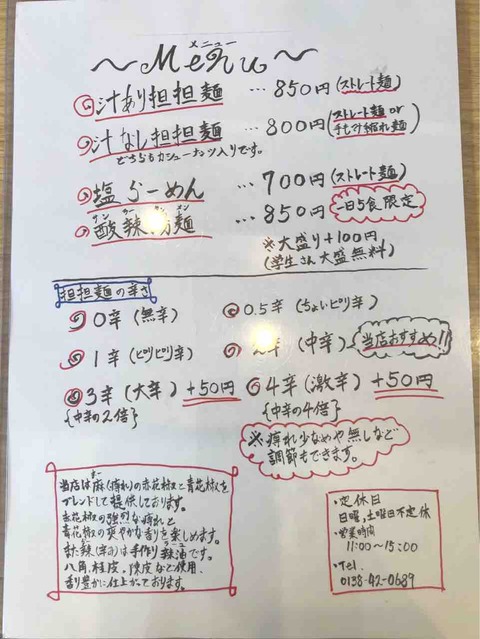 メニュー
～Menu～
汁あり担担麺 … 850円 (ストレート麺)
汁なし担担麺 … 800円 (ストレート麺 or 手もみ縮れ麺)
どちらもカシューナッツ入りです。
塩らーめん … 700円 (ストレート麺)
サン ラー タン メン
酸辣湯麺 … 850円 一日5食限定
※大盛り+100円
(学生さん大盛無料)
担担麺の辛さ
0辛 (無辛) 0.5辛 (ちょいピリ辛)
1辛 (ピリピリ辛) 2辛 (中辛) 当店おすすめ!!
3辛 (大辛) +50円 4辛 (激辛) +50円
{中辛の2倍} {中辛の4倍}
※痺れ少なめや無しなど
調節もできます。
当店は麻(痺れ)の赤花椒と青花椒を
ブレンドして提供しております。
赤花椒の強烈な痺れと
青花椒の爽やかな香りを楽しめます。
また辣(辛さ)は手作り辣油です。
八角、桂皮、陳皮など使用、
香り豊かに仕上がております。
・定休日
日曜、土曜日不定休
・営業時間
11:00~15:00
・Tel.
0138-42-0689